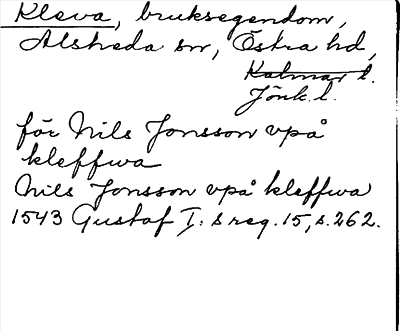 Kleva, bruksegendom,
Alsheda sn, Östra hd,
Kalmar l.
Jönk. l.
för Nils Jonsson vpå
kleffwa
Nils Jonsson vpå kleffwa
1543 Gustaf I:s reg. 15, s. 262.